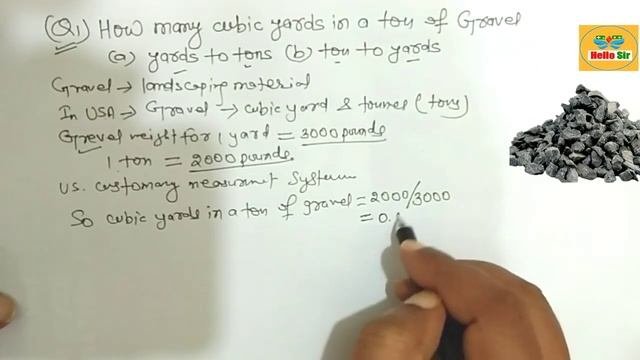 (Q1) How many cubic yards in a ton of Gravel
(a) yards to tons (b) ton to yards
Gravel → landscaping material
In USA → Gravel → cubic yard & tonnes (tons)
Gravel weight for 1 yard = 3000 pounds
1 ton = 2000 pounds
US. customary measurment System
So cubic yards in a ton of gravel = 2000/3000
= 0.
Hello Sir